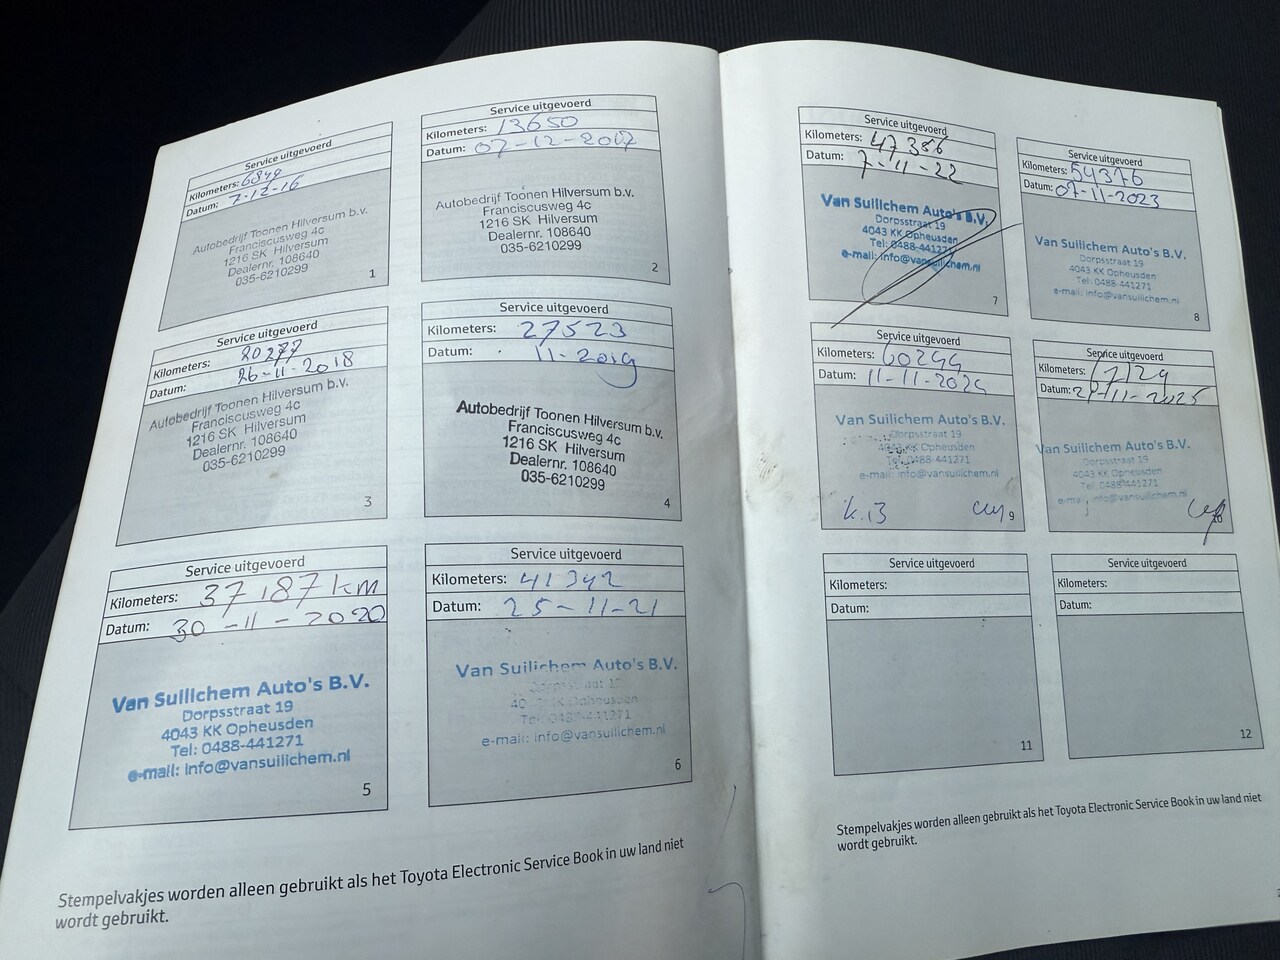 Service uitgevoerd
Kilometers: 6849
Datum: 7-12-16
Autobedrijf Toonen Hilversum b.v.
Franciscusweg 4c
1216 SK Hilversum
Dealernr. 108640
035-6210299
1
Service uitgevoerd
Kilometers: 13650
Datum: 07-12-2017
Autobedrijf Toonen Hilversum b.v.
Franciscusweg 4c
1216 SK Hilversum
Dealernr. 108640
035-6210299
2
Service uitgevoerd
Kilometers: 20277
Datum: 26-11-2018
Autobedrijf Toonen Hilversum b.v.
Franciscusweg 4c
1216 SK Hilversum
Dealernr. 108640
035-6210299
3
Service uitgevoerd
Kilometers: 27523
Datum: 11-2019
Autobedrijf Toonen Hilversum b.v.
Franciscusweg 4c
1216 SK Hilversum
Dealernr. 108640
035-6210299
4
Service uitgevoerd
Kilometers: 37187 km
Datum: 30-11-2020
Van Suilichem Auto's B.V.
Dorpsstraat 19
4043 KK Opheusden
Tel: 0488-441271
e-mail: info@vansuilichem.nl
5
Service uitgevoerd
Kilometers: 41342
Datum: 25-11-21
Van Suilichem Auto's B.V.
Dorpsstraat 19
4043 KK Opheusden
Tel: 0488-441271
e-mail: info@vansuilichem.nl
6
Stempelvakjes worden alleen gebruikt als het Toyota Electronic Service Book in uw land niet
wordt gebruikt.
Service uitgevoerd
Kilometers: 47356
Datum: 7-11-22
Van Suilichem Auto's B.V.
Dorpsstraat 19
4043 KK Opheusden
Tel: 0488-441271
e-mail: info@vansuilichem.nl
7
Service uitgevoerd
Kilometers: 54376
Datum: 07-11-2023
Van Suilichem Auto's B.V.
Dorpsstraat 19
4043 KK Opheusden
Tel: 0488-441271
e-mail: info@vansuilichem.nl
8
Service uitgevoerd
Kilometers: 60244
Datum: 11-11-2024
Van Suilichem Auto's B.V.
Dorpsstraat 19
4043 KK Opheusden
Tel: 0488-441271
e-mail: info@vansuilichem.nl
9
Service uitgevoerd
Kilometers:
Datum:
Van Suilichem Auto's B.V.
Dorpsstraat 19
4043 KK Opheusden
Tel: 0488-441271
e-mail: info@vansuilichem.nl
10
Service uitgevoerd
Kilometers:
Datum:
11
Service uitgevoerd
Kilometers:
Datum:
12
Stempelvakjes worden alleen gebruikt als het Toyota Electronic Service Book in uw land niet
wordt gebruikt.